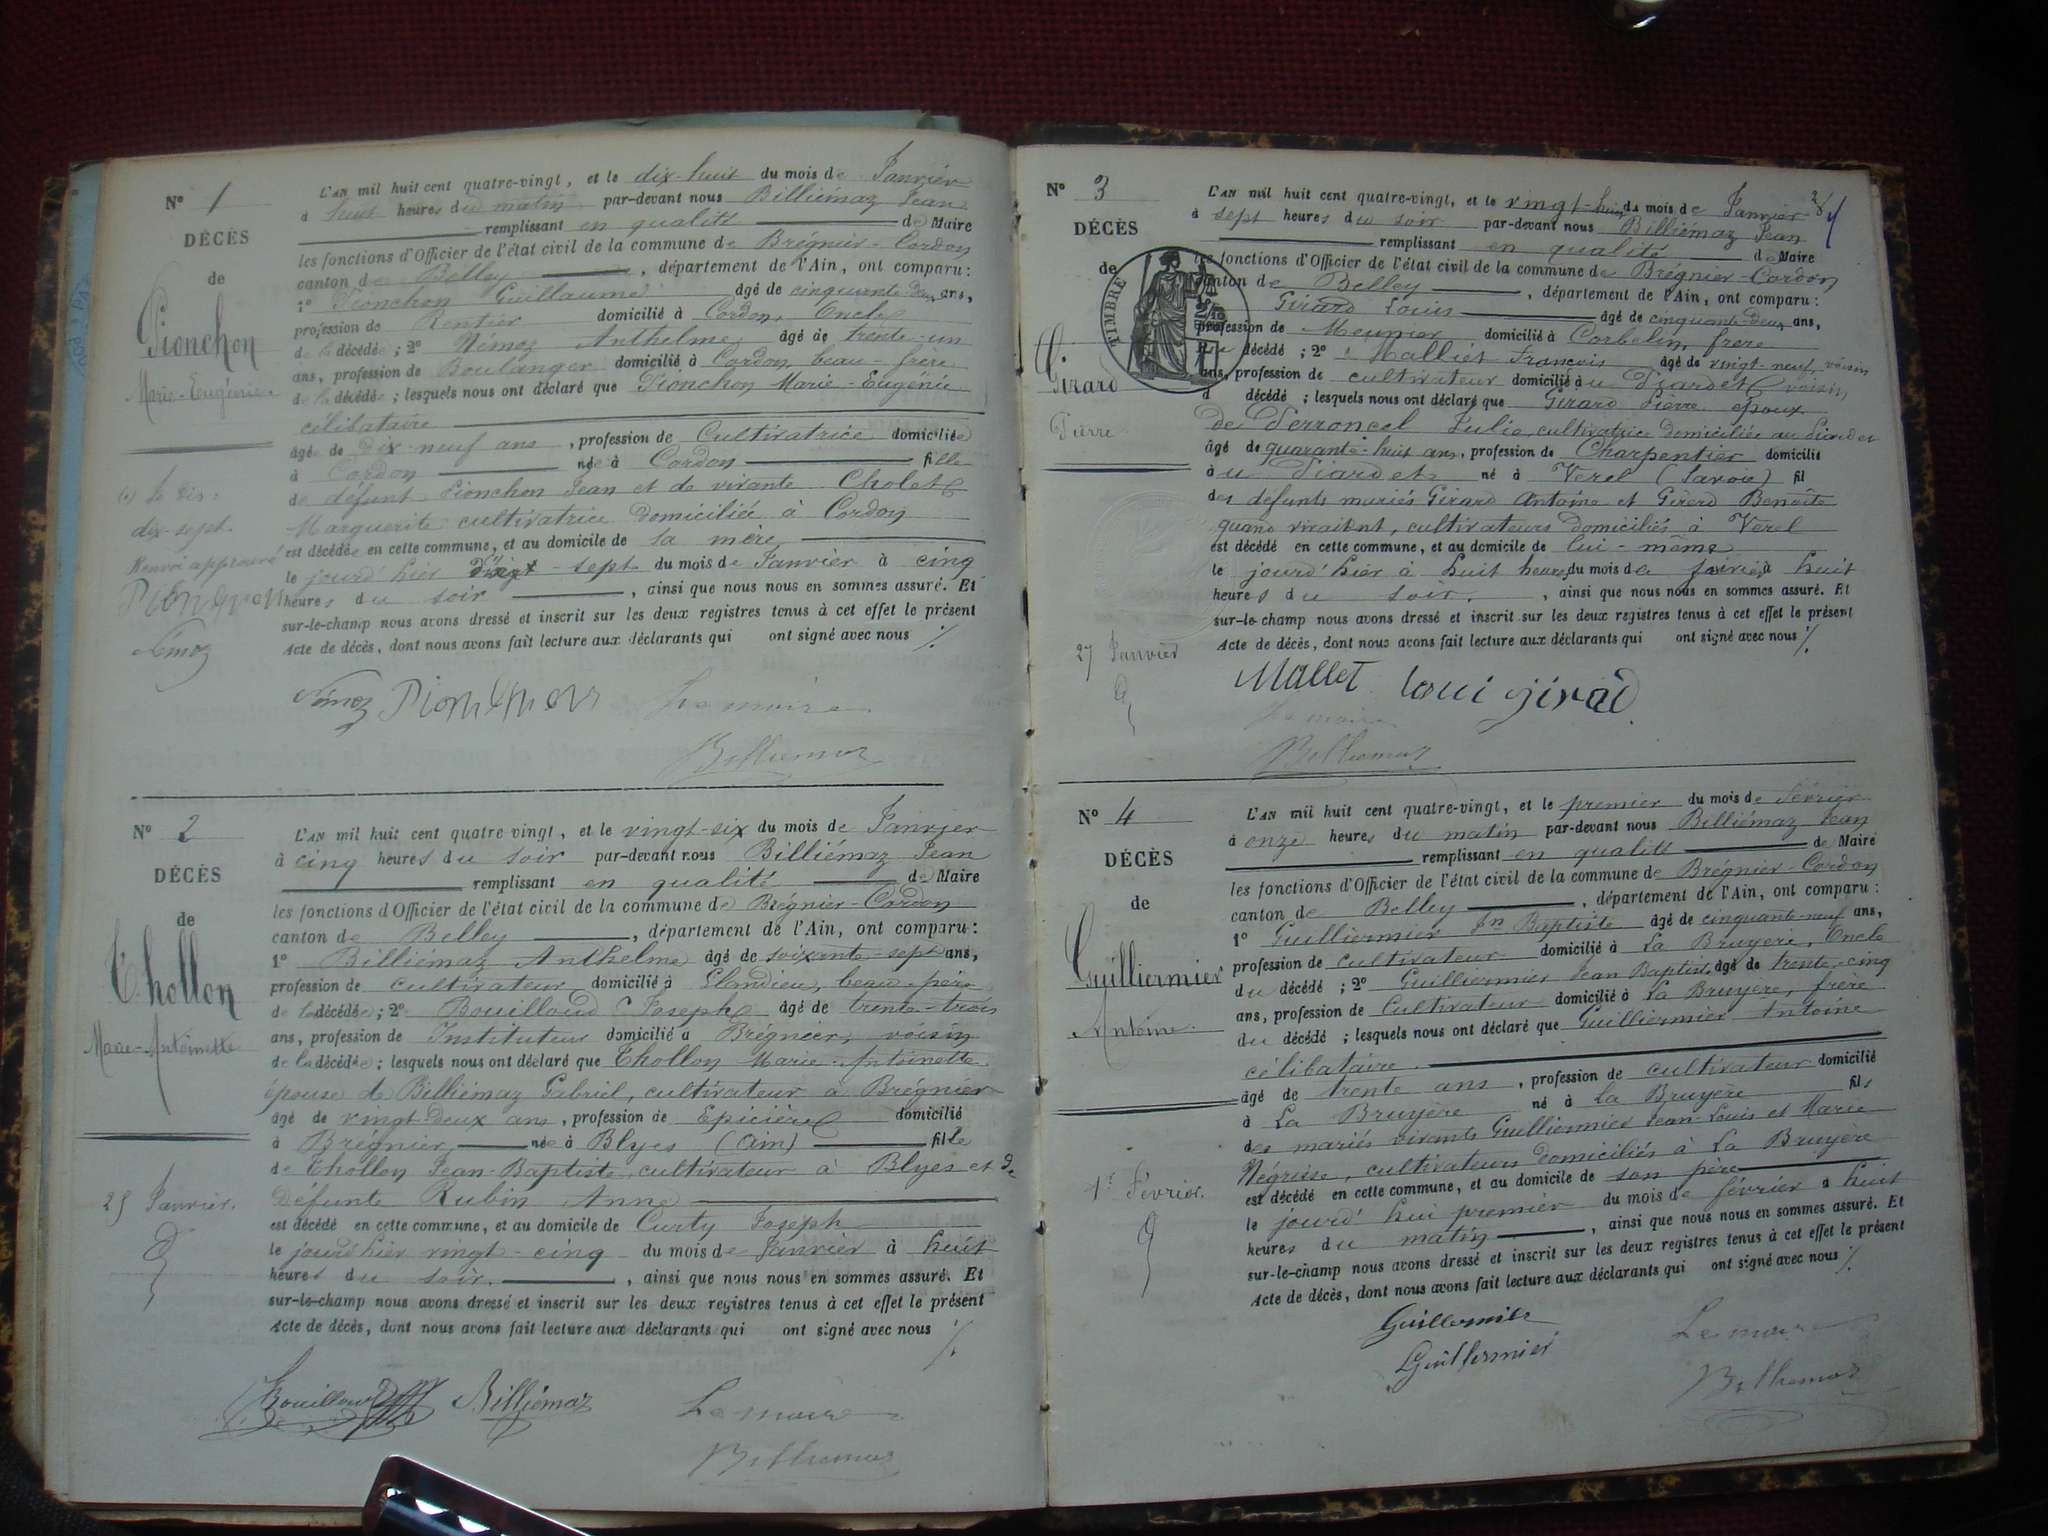 N° 1
DÉCÈS
de
Pionchon
Marie-Eugénie
L'AN mil huit cent quatre-vingt, et le dix-huit du mois de Janvier
à huit heures du matin par-devant nous Billiémaz Jean
remplissant en qualité de Maire
les fonctions d'Officier de l'état civil de la commune de Brégnier-Cordon
canton de Belley, département de l'Ain, ont comparu:
1° Pionchon Guillaume âgé de cinquante-deux ans,
profession de Rentier domicilié à Cordon, Oncle
de la décédée; 2° Némoz Anthelme âgé de trente-un
ans, profession de Boulanger domicilié à Cordon, beau-frère
de la décédée; lesquels nous ont déclaré que Pionchon Marie-Eugénie
célibataire
âgée de Dix-neuf ans, profession de Cultivatrice domiciliée
à Cordon née à Cordon fille
de défunt Pionchon Jean et de vivante Cholet
Marguerite cultivatrice domiciliée à Cordon
est décédée en cette commune, et au domicile de sa mère
le jourd'hier -sept du mois de Janvier à cinq
heures du soir, ainsi que nous nous en sommes assuré. Et
sur-le-champ nous avons dressé et inscrit sur les deux registres tenus à cet effet le présent
Acte de décès, dont nous avons fait lecture aux déclarants qui ont signé avec nous ./.
dix-sept.
Renvoi approuvé
Némoz
Némoz Le maire
Billiemaz
N° 2
DÉCÈS
de
Thollon
Marie-Antoinette
25 Janvier.
L'AN mil huit cent quatre-vingt, et le vingt-six du mois de Janvier
à cinq heures du soir par-devant nous Billiémaz Jean
remplissant en qualité de Maire
les fonctions d'Officier de l'état civil de la commune de Brégnier-Cordon
canton de Belley, département de l'Ain, ont comparu:
1° Billiémaz Anthelme âgé de soixante-sept ans,
profession de cultivateur domicilié à Glandieu, beau-père
de la décédée; 2° Bouilloud Joseph âgé de trente-trois
ans, profession de Instituteur domicilié à Brégnier, voisin
de la décédée; lesquels nous ont déclaré que Thollon Marie-Antoinette
épouse de Billiémaz Gabriel, cultivateur à Brégnier
âgé de vingt-deux ans, profession de Epicière domicilié
à Brégnier née à Blyes (Ain) fille
de Thollon Jean-Baptiste, cultivateur à Blyes et de
défunte Rubin Anne
est décédé en cette commune, et au domicile de Curty Joseph
le jourd'hier vingt-cinq du mois de Janvier à huit
heures du soir, ainsi que nous nous en sommes assuré. Et
sur-le-champ nous avons dressé et inscrit sur les deux registres tenus à cet effet le présent
Acte de décès, dont nous avons fait lecture aux déclarants qui ont signé avec nous ./.
Bouilloud Billiémaz Le maire
Billiemaz
N° 3
DÉCÈS
de
TIMBRE
Girard
Pierre
27 Janvier
L'AN mil huit cent quatre-vingt, et le vingt-huit du mois de Janvier
à sept heures du soir par-devant nous Billiémaz Jean
remplissant en qualité de Maire
les fonctions d'Officier de l'état civil de la commune de Brégnier-Cordon
canton de Belley, département de l'Ain, ont comparu:
Girard Louis âgé de cinquante-deux ans,
profession de Meunier domicilié à Corbelin, frère
décédé; 2° Malliet François âgé de vingt-neuf, voisin
ans, profession de cultivateur domicilié à voisin,
d décédé; lesquels nous ont déclaré que Girard Pierre époux
de Perroncel Julie, cultivatrice domiciliée au
âgé de quarante-huit ans, profession de Charpentier domicilié
à né à Verel (Savoie) fil
des défunts mariés Girard Antoine et Girerd Benoîte
quand vivaient, cultivateurs domiciliés à Verel
est décédé en cette commune, et au domicile de lui-même
le jourd'hier à huit heures du mois de Janvier à huit
heures du soir, ainsi que nous nous en sommes assuré. Et
sur-le-champ nous avons dressé et inscrit sur les deux registres tenus à cet effet le présent
Acte de décès, dont nous avons fait lecture aux déclarants qui ont signé avec nous ./.
Mallet loui girad
Le maire
Billiemaz
N° 4
DÉCÈS
de
Guilliermier
Antoine
1er Février.
L'AN mil huit cent quatre-vingt, et le premier du mois de février
à onze heures du matin par-devant nous Billiémaz Jean
remplissant en qualité de Maire
les fonctions d'Officier de l'état civil de la commune de Brégnier-Cordon
canton de Belley, département de l'Ain, ont comparu:
1° Guilliermier Jn Baptiste âgé de cinquante-neuf ans,
profession de cultivateur domicilié à La Bruyère, Oncle
du décédé; 2° Guilliermier Jean Baptiste âgé de trente-cinq
ans, profession de Cultivateur domicilié à La Bruyère, frère
du décédé; lesquels nous ont déclaré que Guilliermier Antoine
célibataire
âgé de trente ans, profession de cultivateur domicilié
à La Bruyère né à La Bruyère fils
des mariés vivants Guilliermier Jean-Louis et Marie
Négrisse, cultivateurs domiciliés à La Bruyère
est décédé en cette commune, et au domicile de son père
le jourd'hui premier du mois de février à huit
heures du matin, ainsi que nous nous en sommes assuré. Et
sur-le-champ nous avons dressé et inscrit sur les deux registres tenus à cet effet le présent
Acte de décès, dont nous avons fait lecture aux déclarants qui ont signé avec nous ./.
Guillermier
Guillermier
Le maire
Billiemaz